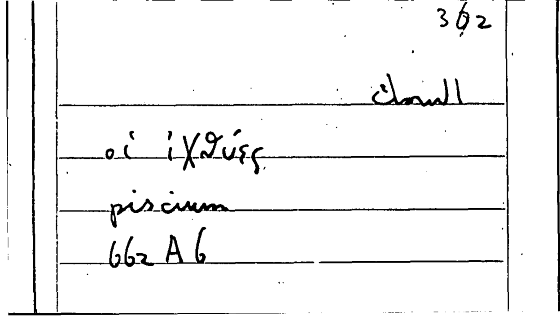 362
οἱ ἰχθύες
piscium
662 A 6